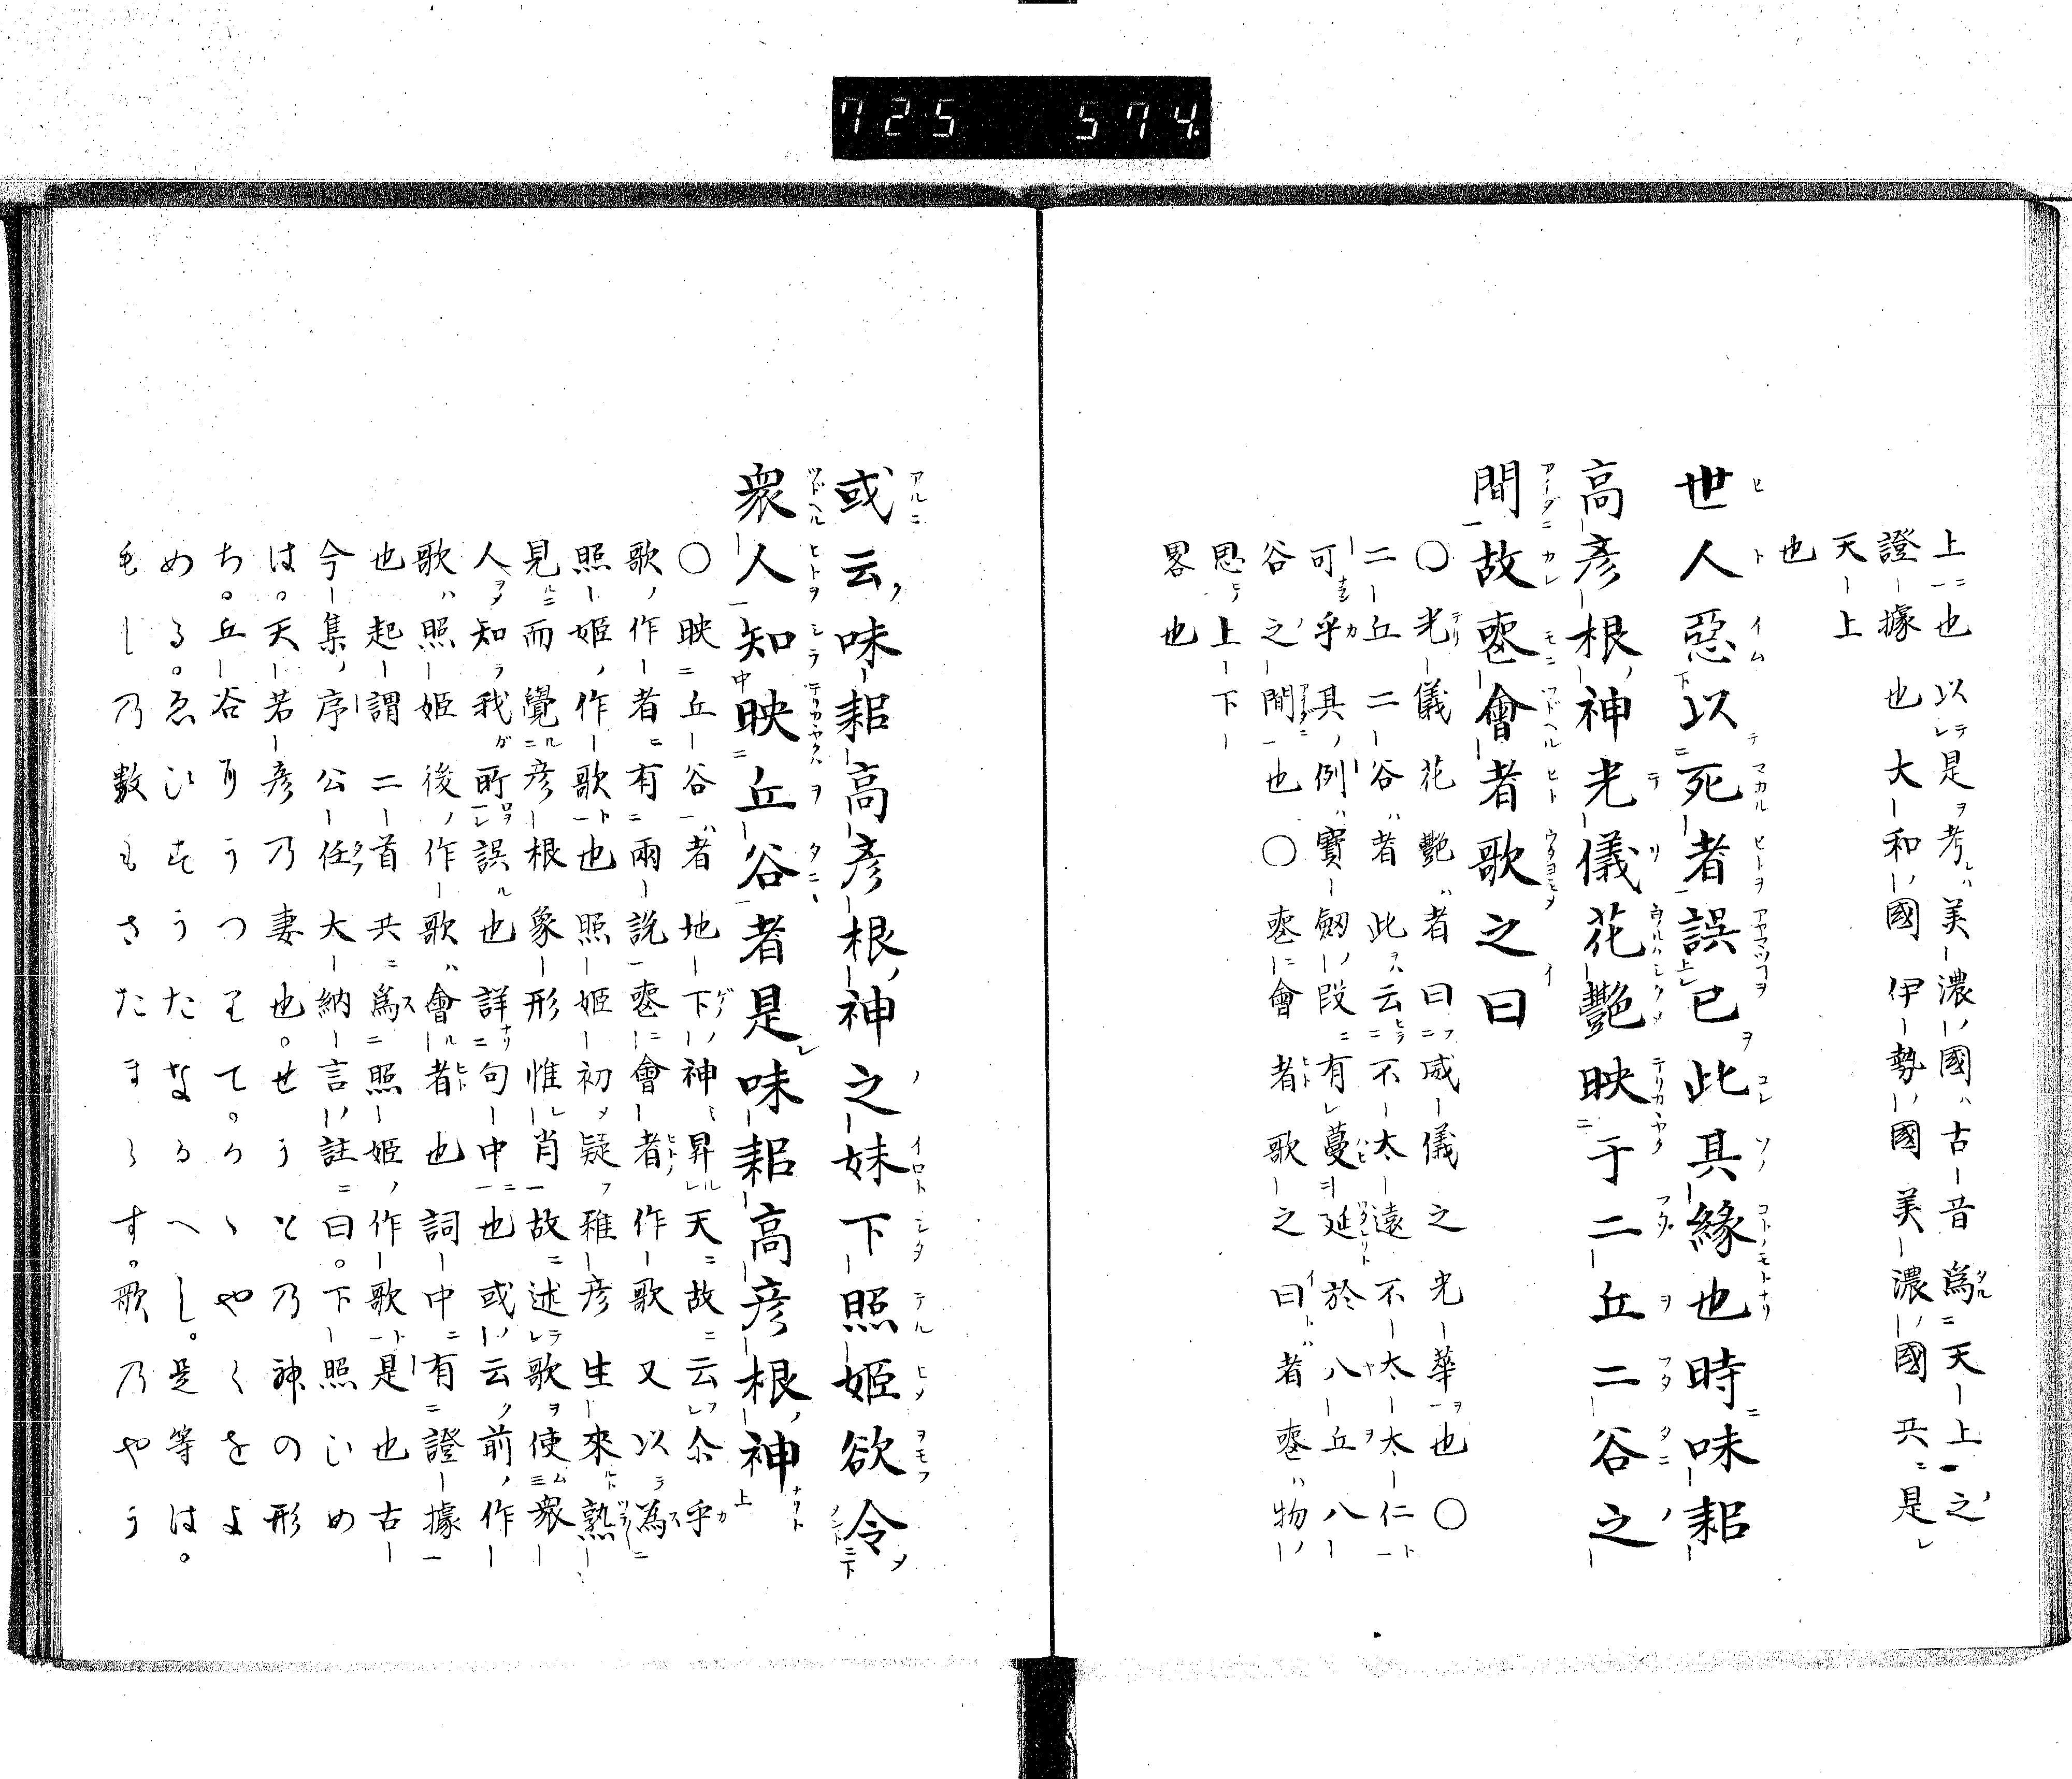 725 574.
上也以是考美濃國古音為天上之
證據也大和國伊勢國美濃國共是
天上
也
世人惡以死者誤已此其緣也時味耜
高彥根神光儀花艷映于二丘二谷之
間故喪會者歌之曰
〇光儀花艷者曰威儀之光華也〇
二丘二谷者此云不太遠不太太仁
可乎其例寶劔段有蔓延於八丘八
谷之間也〇喪會者歌之曰者喪物
思上下
畧也
或云味耜高彥根神之妹下照姬欲令
衆人知映丘谷者是味耜高彥根神
〇映丘谷者地下神昇天故云尒乎
歌作者有兩說喪會者作歌又以為
照姬作歌也照姬初疑稚彥生來熟
見而覺彥根象形惟肖故述歌使衆
人知我所誤也詳句中也或云前作
歌照姬後作歌會者也詞中有證據
也起謂二首共為照姬作歌是也古
今集序公任大納言註曰。下照いめ
は。天若彥乃妻也。せうと乃神の形
ち。丘谷耳うつりて。かゝやくをよ
める。ゑひすうたなるへし。是等は。
もし乃數もさたまらす。歌乃やう